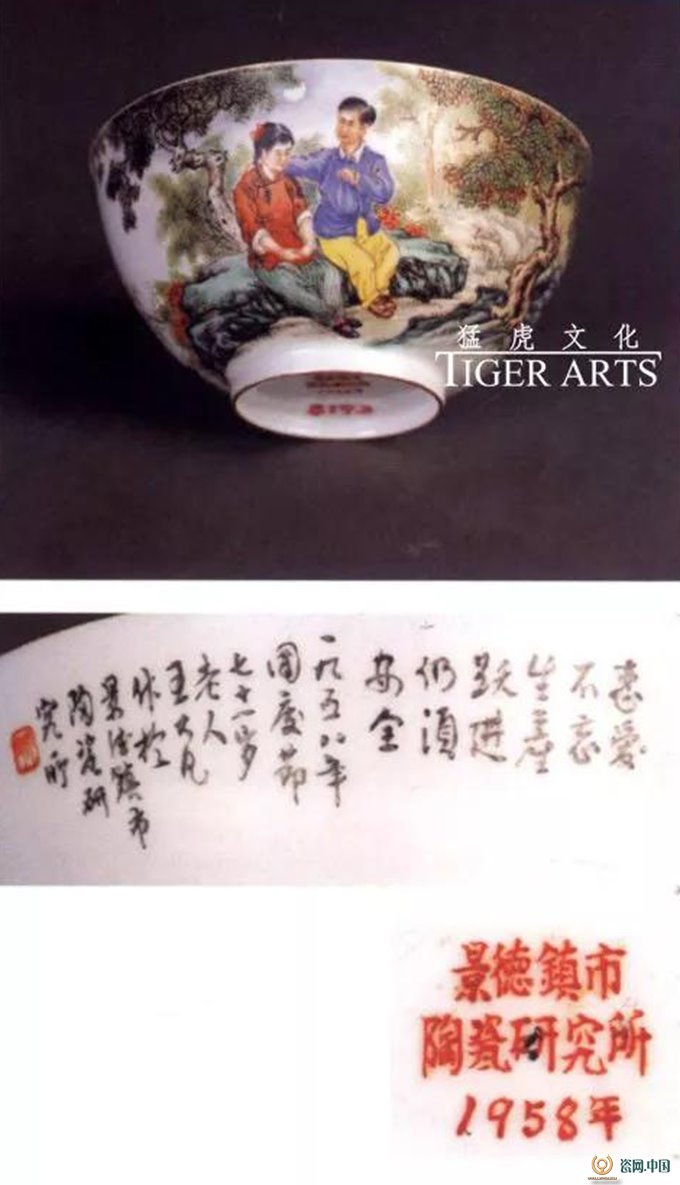 猛虎文化
TIGER ARTS
恋爱
不忘
生产
跃进
仍须
安全
一九五八年
国庆节
七十一岁
老人
王大凡
作於
景德镇市
陶瓷研
究所
景德鎮市
陶瓷研究所
1958年
瓷网.中国